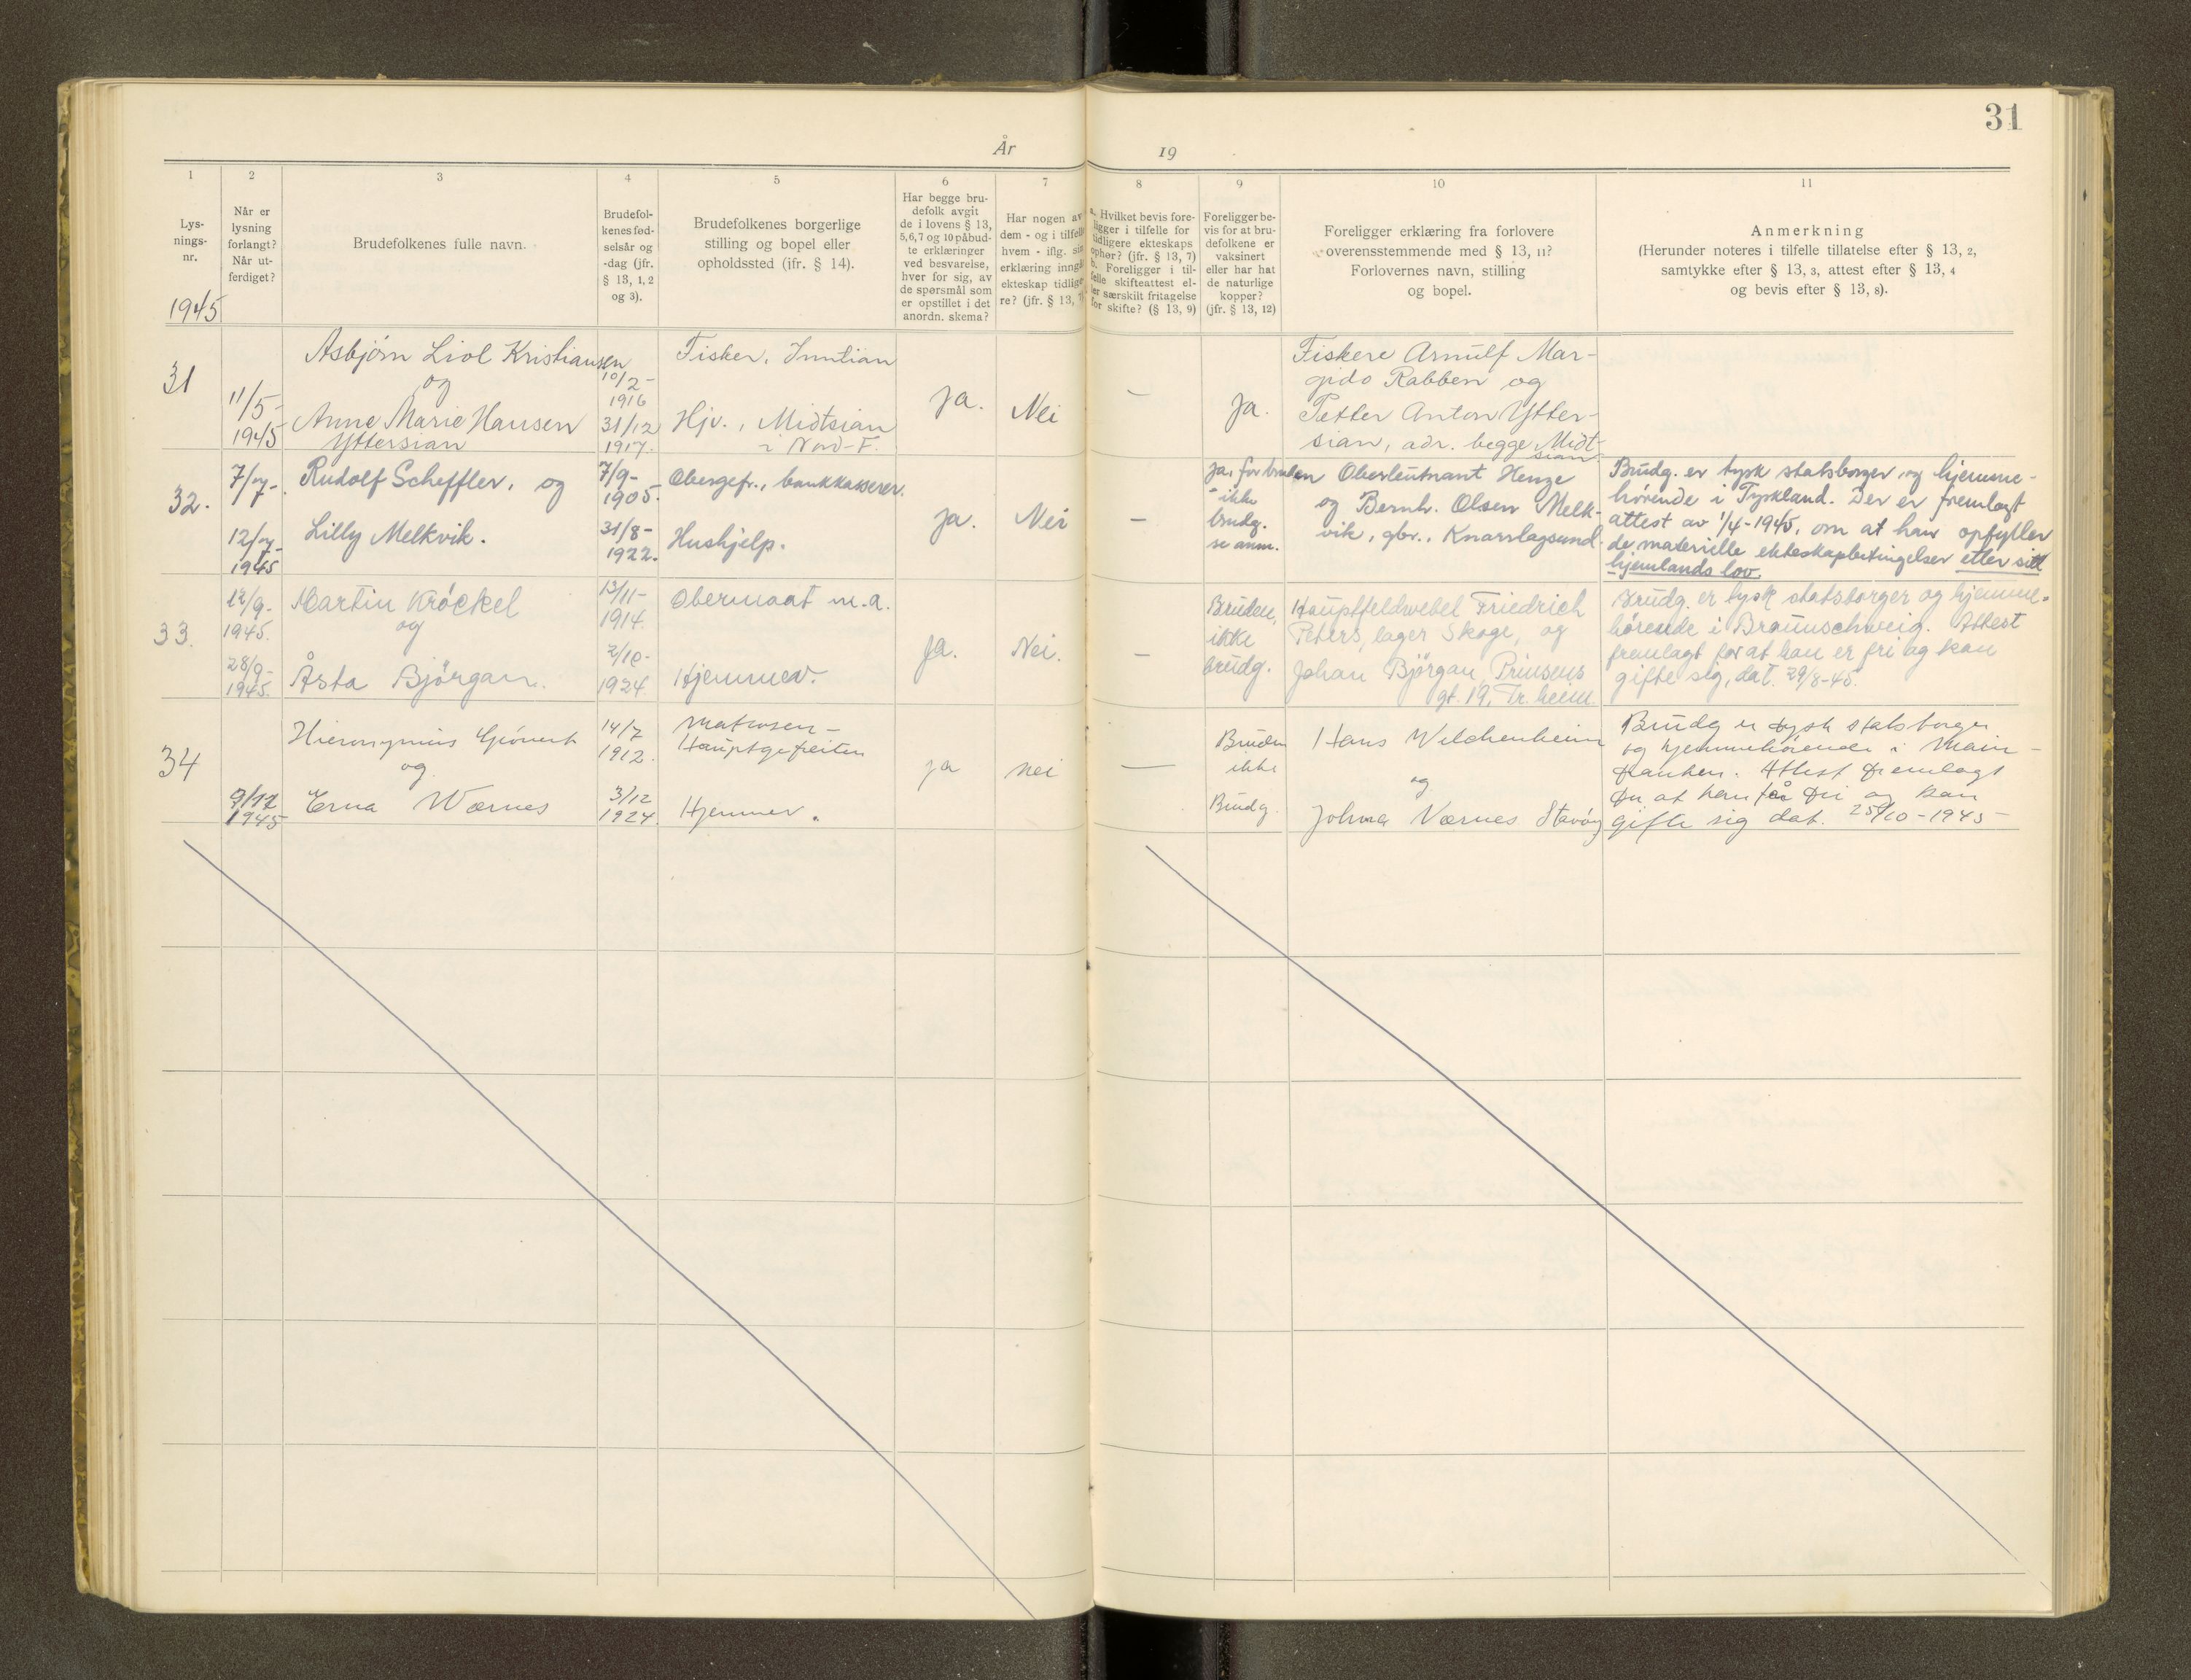 31
År 19
1 2 3 4 5 6 7 8 9 10 11
Lys-
nings-
nr.
1945
Når er
lysning
forlangt?
Når ut-
ferdiget?
Brudefolkenes fulle navn.
Brudefol-
kenes fød-
selsår og
-dag (jfr.
§ 13, 1, 2
og 3).
Brudefolkenes borgerlige
stilling og bopel eller
opholdssted (jfr. § 14).
Har begge bru-
defolk avgit
de i lovens § 13,
5,6,7 og 10 påbud-
te erklæringer
ved besvarelse,
hver for sig, av
de spørsmål som
er opstillet i det
anordn. skema?
Har nogen av
dem - og i tilfelle
hvem - iflg. sin
erklæring inngåt
ekteskap tidlige-
re? (jfr. § 13, 7)
a. Hvilket bevis fore-
ligger i tilfelle for
tidligere ekteskaps
ophør? (jfr. § 13, 7)
b. Foreligger i til-
felle skifteattest el-
ler særskilt fritagelse
for skifte? (§ 13, 9)
Foreligger be-
vis for at bru-
defolkene er
vaksinert
eller har hat
de naturlige
kopper?
(jfr. § 13, 12)
Foreligger erklæring fra forlovere
overensstemmende med § 13, 11?
Forlovernes navn, stilling
og bopel.
Anmerkning
(Herunder noteres i tilfelle tillatelse efter § 13, 2,
samtykke efter § 13, 3, attest efter § 13, 4
og bevis efter § 13, 8).
31
11/5-
1945
Asbjørn Liol Kristiansen
og
Anne Marie Hansen
Yttersian
10/2-
1916
31/12
1917.
Fisker, Inntian
Hjv., Midtsian
i Nord-F.
Ja.
Nei
—
Ja.
Fiskere Arnulf Mar-
gido Rabben og
Petter Anton Ytter-
sian, adr. begge Midt-
sian
32.
7/7-
12/7-
1945
Rudolf Scheffler, og
Lilly Melkvik.
7/9-
1905.
31/8-
1922.
Obergefr., bankkasserer.
Hushjelp.
Ja.
Nei
—
Ja, for bruden
- ikke
brudg.
se anm.
Oberleutnant Henze
og Bernh. Olsen Melk-
vik, gbr., Knarrlagsund.
Brudg. er tysk statsborger og hjemme-
hørende i Tyskland. Der er fremlagt
attest av 1/4-1945, om at han opfyller
de materielle ekteskapsbetingelser etter sitt
hjemlands lov.
33.
12/9-
1945.
28/9-
1945.
Martin Kröckel
og
Åsta Bjørgan.
13/11-
1914.
2/10-
1924.
Obermaat m.a.
Hjemmev.
Ja.
Nei.
—
Bruden,
ikke
brudg.
Hauptfeldwebel Friedrich
Peters, lager Skage, og
Johan Bjørgan, Prinsens
gt. 19, Tr.heim.
Brudg. er tysk statsborger og hjemme-
hørende i Braunschweig. Attest
fremlagt for at han er fri og kan
gifte sig, dat. 29/8-45.
34
9/12
1945
Hieronymus
og
Erna Værnes
14/7
1912.
3/12
1924.
Matrosen-
Hauptgefreiten
Hjemmev.
ja
nei
—
Bruden
ikke
Brudg.
Hans Welchenheim
og
Værnes
Brudg er tysk statsborger
og hjemmehørende i Main-
franken. Attest fremlagt
for at han er fri og kan
gifte sig dat. 25/10-1945-